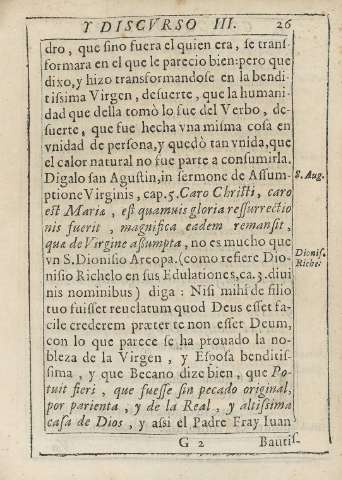 Y DISCVRSO III. 26
dro, que sino fuera el quien era, se trans-
formara en el que le parecio bien: pero que
dixo, y hizo transformandose en la bendi-
tissima Virgen, desuerte, que la humani-
dad que della tomò lo fue del Verbo, de-
suerte, que fue hecha vna misma cosa en
vnidad de persona, y quedò tan vnida, que
el calor natural no fue parte a consumirla.
Digalo san Agustin, in sermone de Assum-
ptione Virginis, cap. 5. Caro Christi, caro
S. Aug.
est Maria, est quamuis gloria ressurrectio
nis fuerit, magnifica eadem remansit,
qua de Virgine assumpta, no es mucho que
vn S. Dionisio Areopa. (como refiere Dio-
Dionis.
nisio Richelo en sus Edulationes, ca. 3. diui
Richel.
nis nominibus) diga: Nisi mihi de filio
tuo fuisset reuelatum quod Deus esset fa-
cile crederem præter te non esset Deum,
con lo que parece se ha prouado la no-
bleza de la Virgen, y Esposa benditis-
sima, y que Becano dize bien, que Po-
tuit fieri, que fuesse sin pecado original,
por parienta, y de la Real, y altissima
casa de Dios, y assi el Padre Fray Iuan
G 2 Bautis-